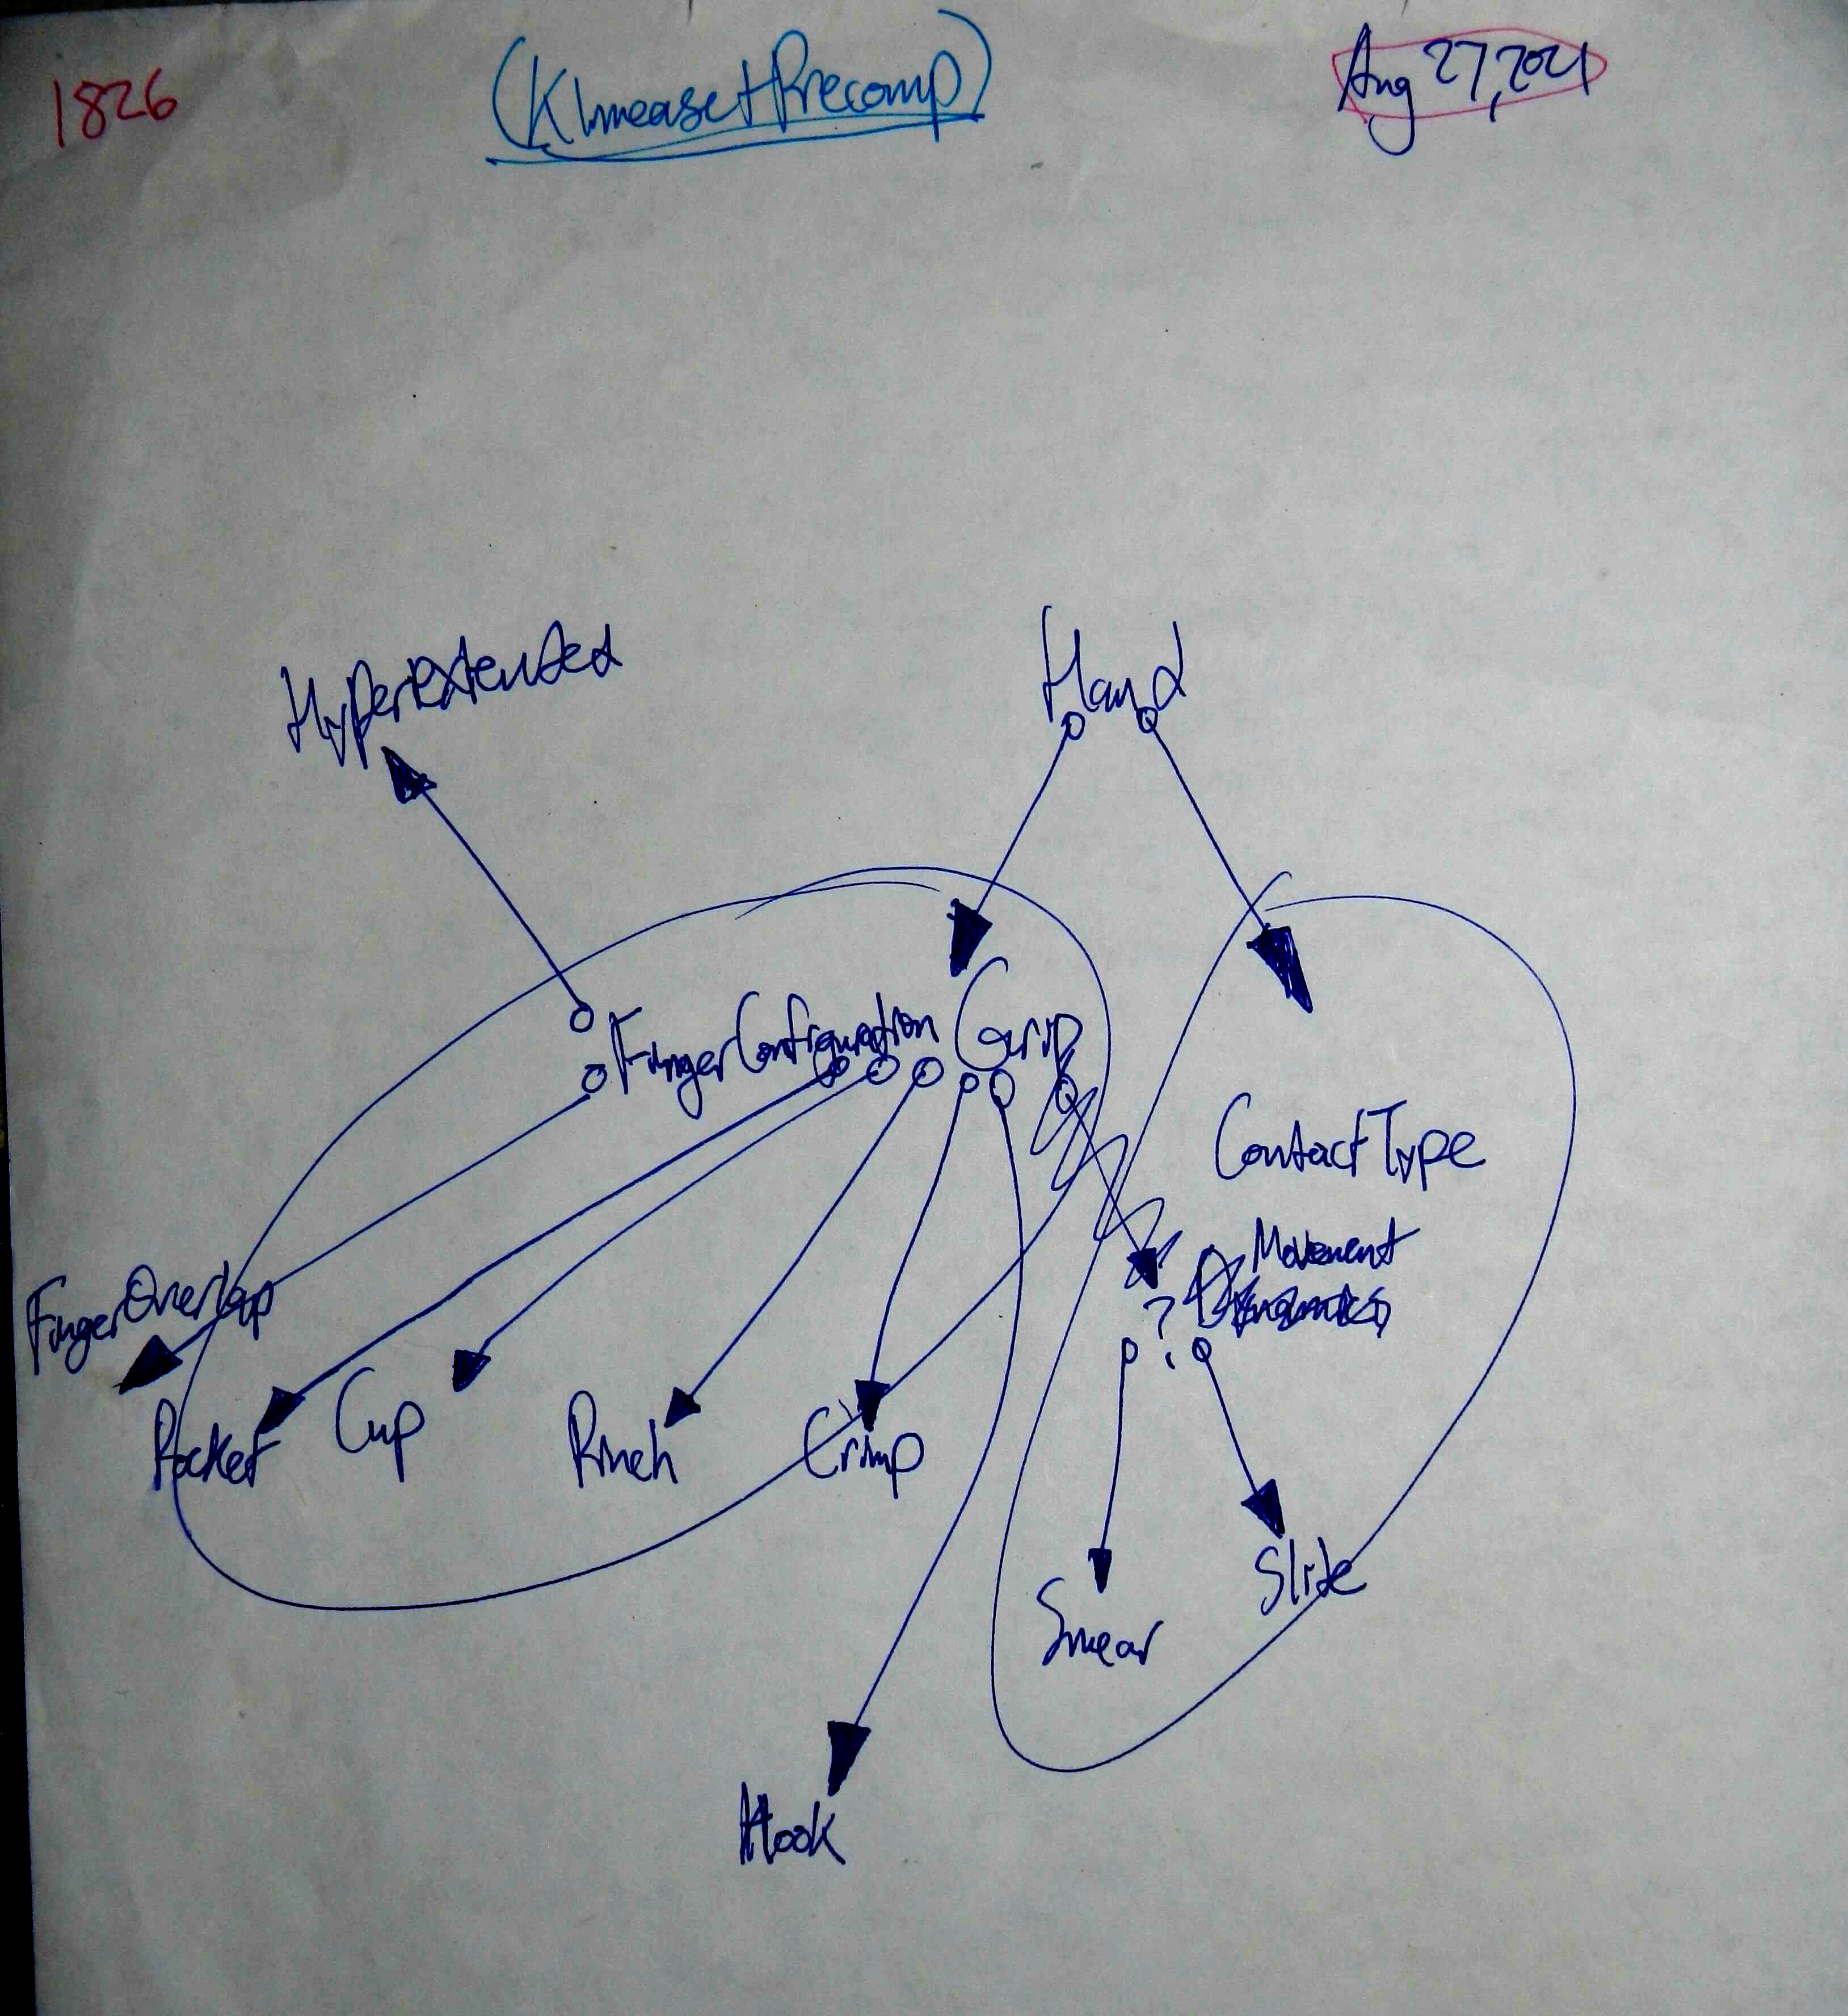 1826
(Klmease+Precomp)
Aug 27, 2021
HyperExtended
Hand
FingerConfiguration Grip
ContactType
Movement
?
FingerOverlap
Pocket
Cup
Pinch
Crimp
Slide
Smear
Hook